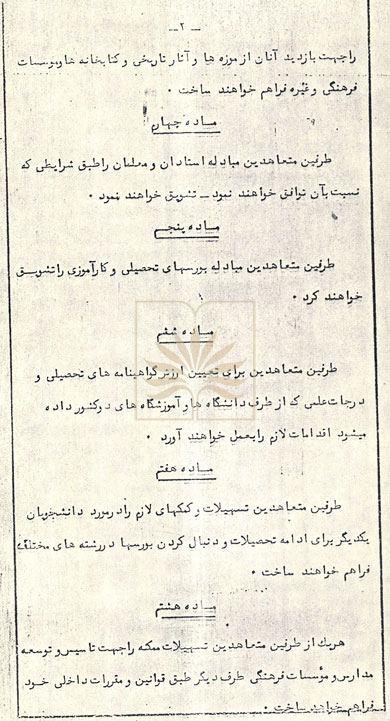 ـ ۲ ـ
را جهت بازدید آنان از موزه ها و آثار تاریخی و کتابخانه ها و موسسات
فرهنگی و غیره فراهم خواهند ساخت ۰
ماده چهارم
طرفین متعاهدین مبادله استادان و معلمان را طبق شرایطی که
نسبت بآن توافق خواهند نمود ـ تشویق خواهند نمود ۰
ماده پنجم
طرفین متعاهدین مبادله بورسهای تحصیلی و کارآموزی را تشویق
خواهند کرد ۰
ماده ششم
طرفین متعاهدین برای تعیین ارزش گواهینامه های تحصیلی و
درجات علمی که از طرف دانشگاه ها و آموزشگاه های دو کشور داده
میشود اقدامات لازم را بعمل خواهند آورد ۰
ماده هفتم
طرفین متعاهدین تسهیلات و کمکهای لازم را در مورد دانشجویان
یکدیگر برای ادامه تحصیلات و دنبال کردن بورسها در رشته های مختلف
فراهم خواهند ساخت ۰
ماده هشتم
هریک از طرفین متعاهدین تسهیلات ممکنه را جهت تاسیس و توسعه
مدارس و مؤسسات فرهنگی طرف دیگر طبق قوانین و مقررات داخلی خود
فراهم خواهند ساخت ۰